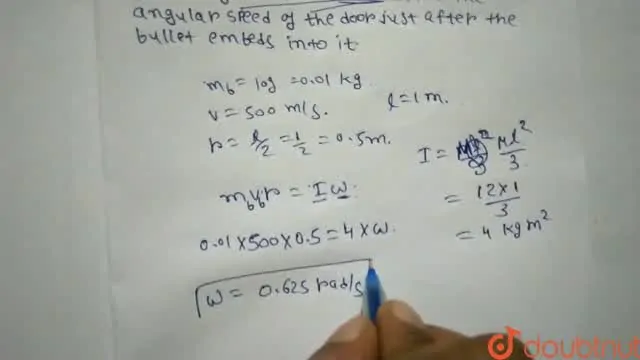 angular speed of the door just after the
bullet embeds into it.
m_b = 10g = 0.01 kg.
v = 500 m/s.
l = 1 m.
r = l/2 = 1/2 = 0.5m.
I = Ml²/3
= 12×1/3
= 4 kg m²
m_b v_b r = I ω.
0.01×500×0.5 = 4×ω.
ω = 0.625 rad/s
doubtnut